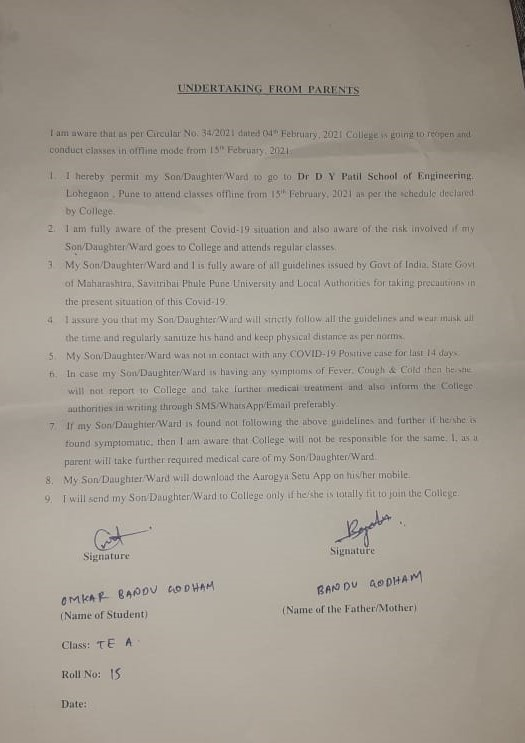 UNDERTAKING FROM PARENTS
I am aware that as per Circular No. 34/2021 dated 04th February, 2021 College is going to reopen and
conduct classes in offline mode from 15th February, 2021
1. I hereby permit my Son/Daughter/Ward to go to Dr D Y Patil School of Engineering,
Lohegaon , Pune to attend classes offline from 15th February, 2021 as per the schedule declared
by College
2. I am fully aware of the present Covid-19 situation and also aware of the risk involved if my
Son/Daughter/Ward goes to College and attends regular classes.
3. My Son/Daughter/Ward and I is fully aware of all guidelines issued by Govt of India, State Govt
of Maharashtra, Savitribai Phule Pune University and Local Authorities for taking precautions in
the present situation of this Covid-19.
4. I assure you that my Son/Daughter/Ward will strictly follow all the guidelines and wear mask all
the time and regularly sanitize his hand and keep physical distance as per norms.
5. My Son/Daughter/Ward was not in contact with any COVID-19 Positive case for last 14 days.
6. In case my Son/Daughter/Ward is having any symptoms of Fever, Cough & Cold then he/she
will not report to College and take further medical treatment and also inform the College
authorities in writing through SMS/WhatsApp/Email preferably.
7. If my Son/Daughter/Ward is found not following the above guidelines and further if he/she is
found symptomatic, then I am aware that College will not be responsible for the same. I, as a
parent will take further required medical care of my Son/Daughter/Ward.
8. My Son/Daughter/Ward will download the Aarogya Setu App on his/her mobile.
9. I will send my Son/Daughter/Ward to College only if he/she is totally fit to join the College.
Signature Signature
OMKAR BANDU GODHAM BANDU GODHAM
(Name of Student) (Name of the Father/Mother)
Class: TE A
Roll No: 15
Date: